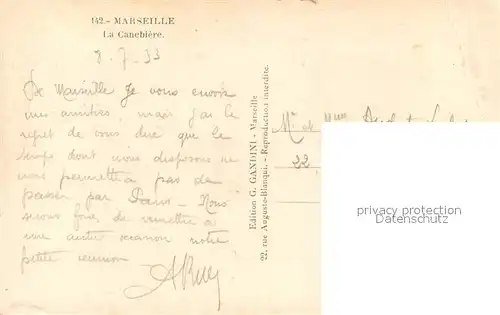 142. - MARSEILLE
La Canebière.
8. 7. 33
De Marseille je vous envoie
mes amitiés, mais j'ai le
regret de vous dire que le
temps dont nous disposons ne
nous permettra pas de
passer par Paris - Nous
serons forcé de remettre à
une autre occasion notre
petite réunion
Edition G. GANDINI - Marseille
22, rue Auguste-Blanqui. - Reproduction interdite.
Mr et Mme
22
privacy protection
www.ansichtskarten-center.de